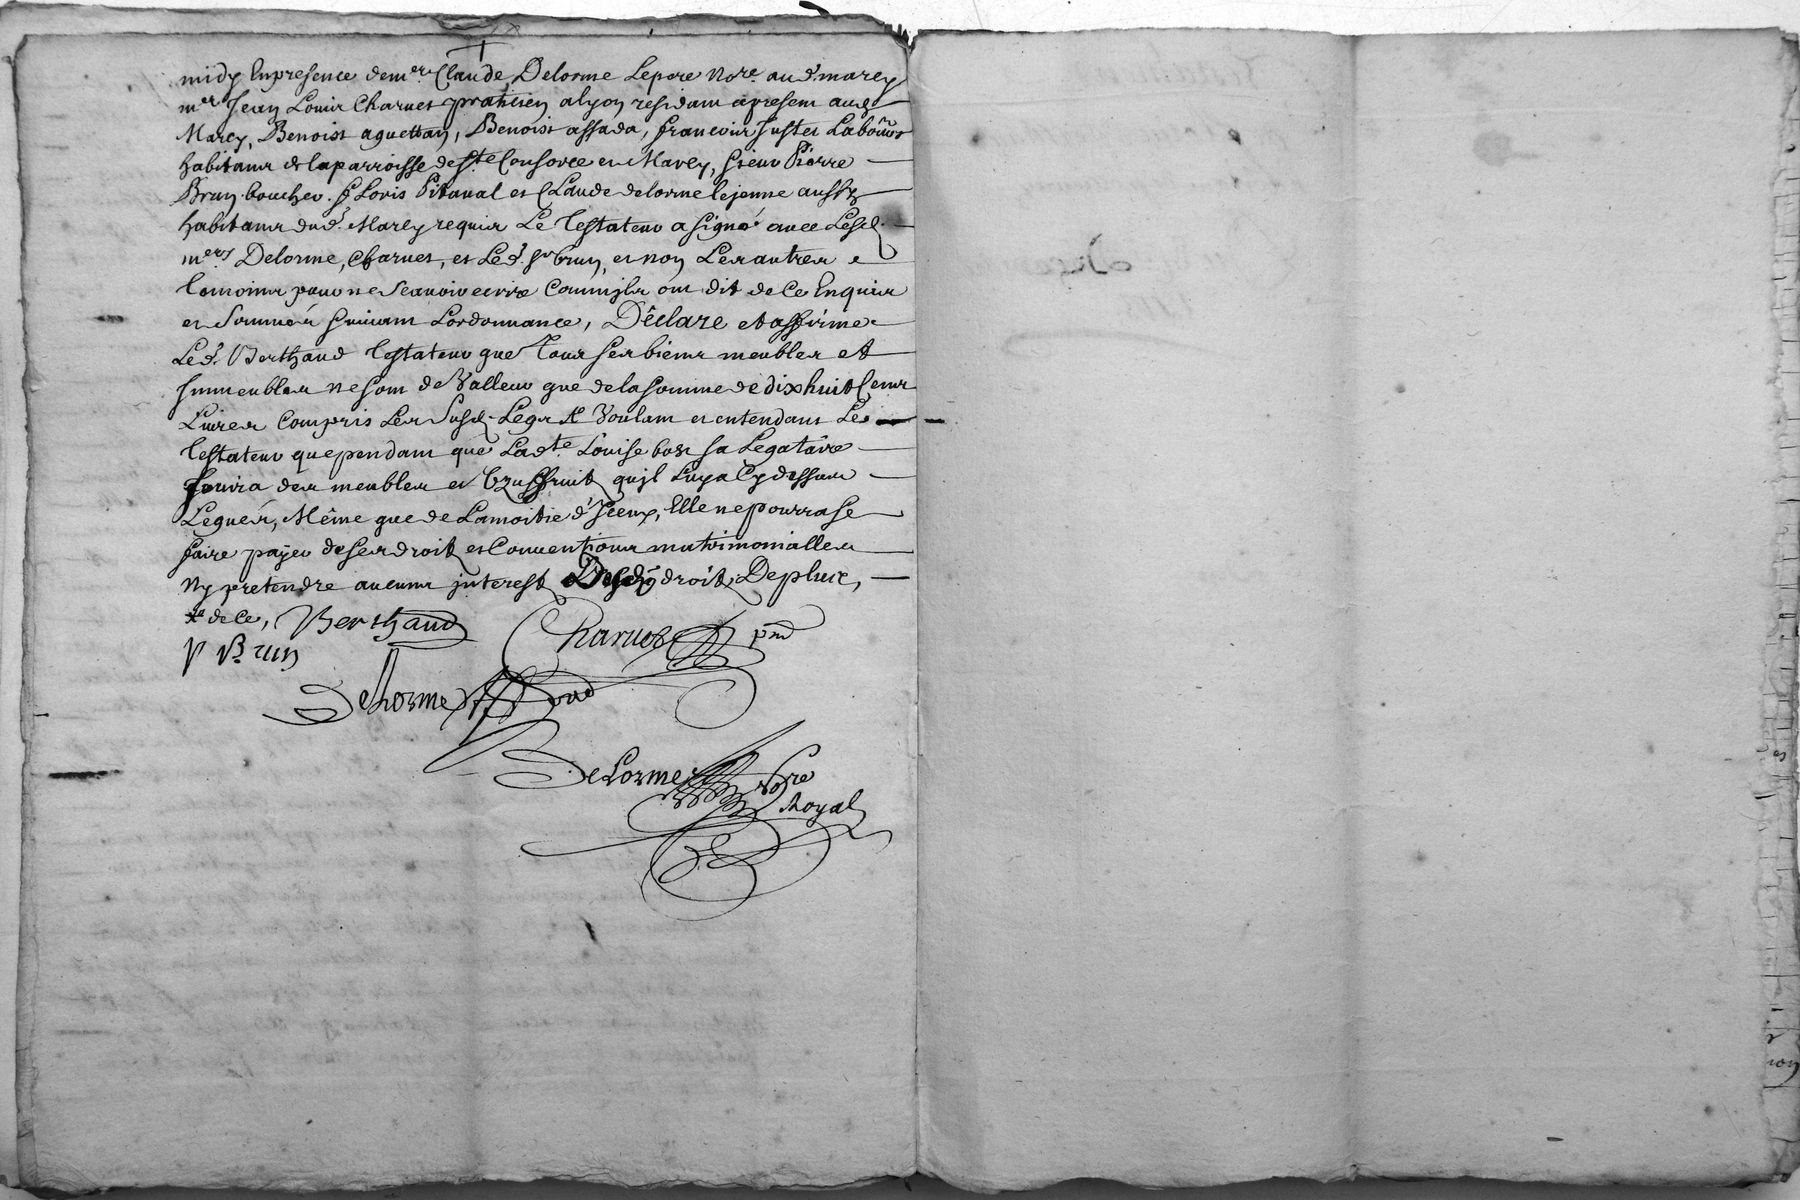 midy Enpresence de m.er Claude Delorme Lepere No.re aud. marcy
m.er Jean Louis Charvet pratticien a lyon residant apresent aud.
Marcy, Benoist aguettan, Benoist assada, francois Juste Labour.s
habitans de laparroisse de S.te Consorce et Marcy, Sieur Pierre
Brun boucher, Pitaval et Claude delorme lejeune aussy
habitans dud. Marcy requis Le Testateur a signé avec Lesd.
m.ers Delorme, Charvet, et Led. S.r brun, et non Les autres
Temoins pour ne Scavoir ecrire Commils ont dit de Ce Enquis
et Sommés suivant Lordonnance, Déclare et affirme
Led. Berthaud Testateur que Tous ses biens meubles et
Immeubles ne sont de Valleur que de la somme de dixhuit Cents
Livres Compris Les Susd. Legs Voulant et entendant Le
Testateur quependant que Lad.te Louise bost sa Legataire
Jouira des meubles et Uzuffruit quil Luy a Cy dessus
Legués, Même que de Lamoitié d'Iceux, Elle ne pourra se
faire payer de ses droits et Conventions matrimonialles
Ny pretendre aucuns interest Desd. droits Deplus,
de ce, Berthaud Charvet pnt
P Brun
Delorme
DeLorme No.re
Royal